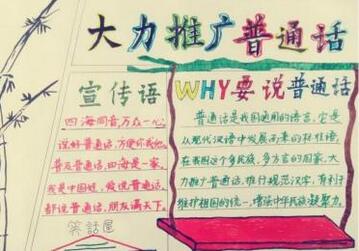 大力推广普通话
宣传语
四海同音,万众一心。
说好普通话,方便你我他。
普及普通话,四海是一家。
我是中国娃,爱说普通话。
都说普通话,朋友满天下。
笑话屋
WHY要说普通话
普通话是我国通用的语言,它是
以现代汉语中发展而来的标准语,
在我国这个多民族、多方言的国家,大
力推广普通话,推行规范汉字,有利于
维护祖国的统一,增强中华民族凝聚力。